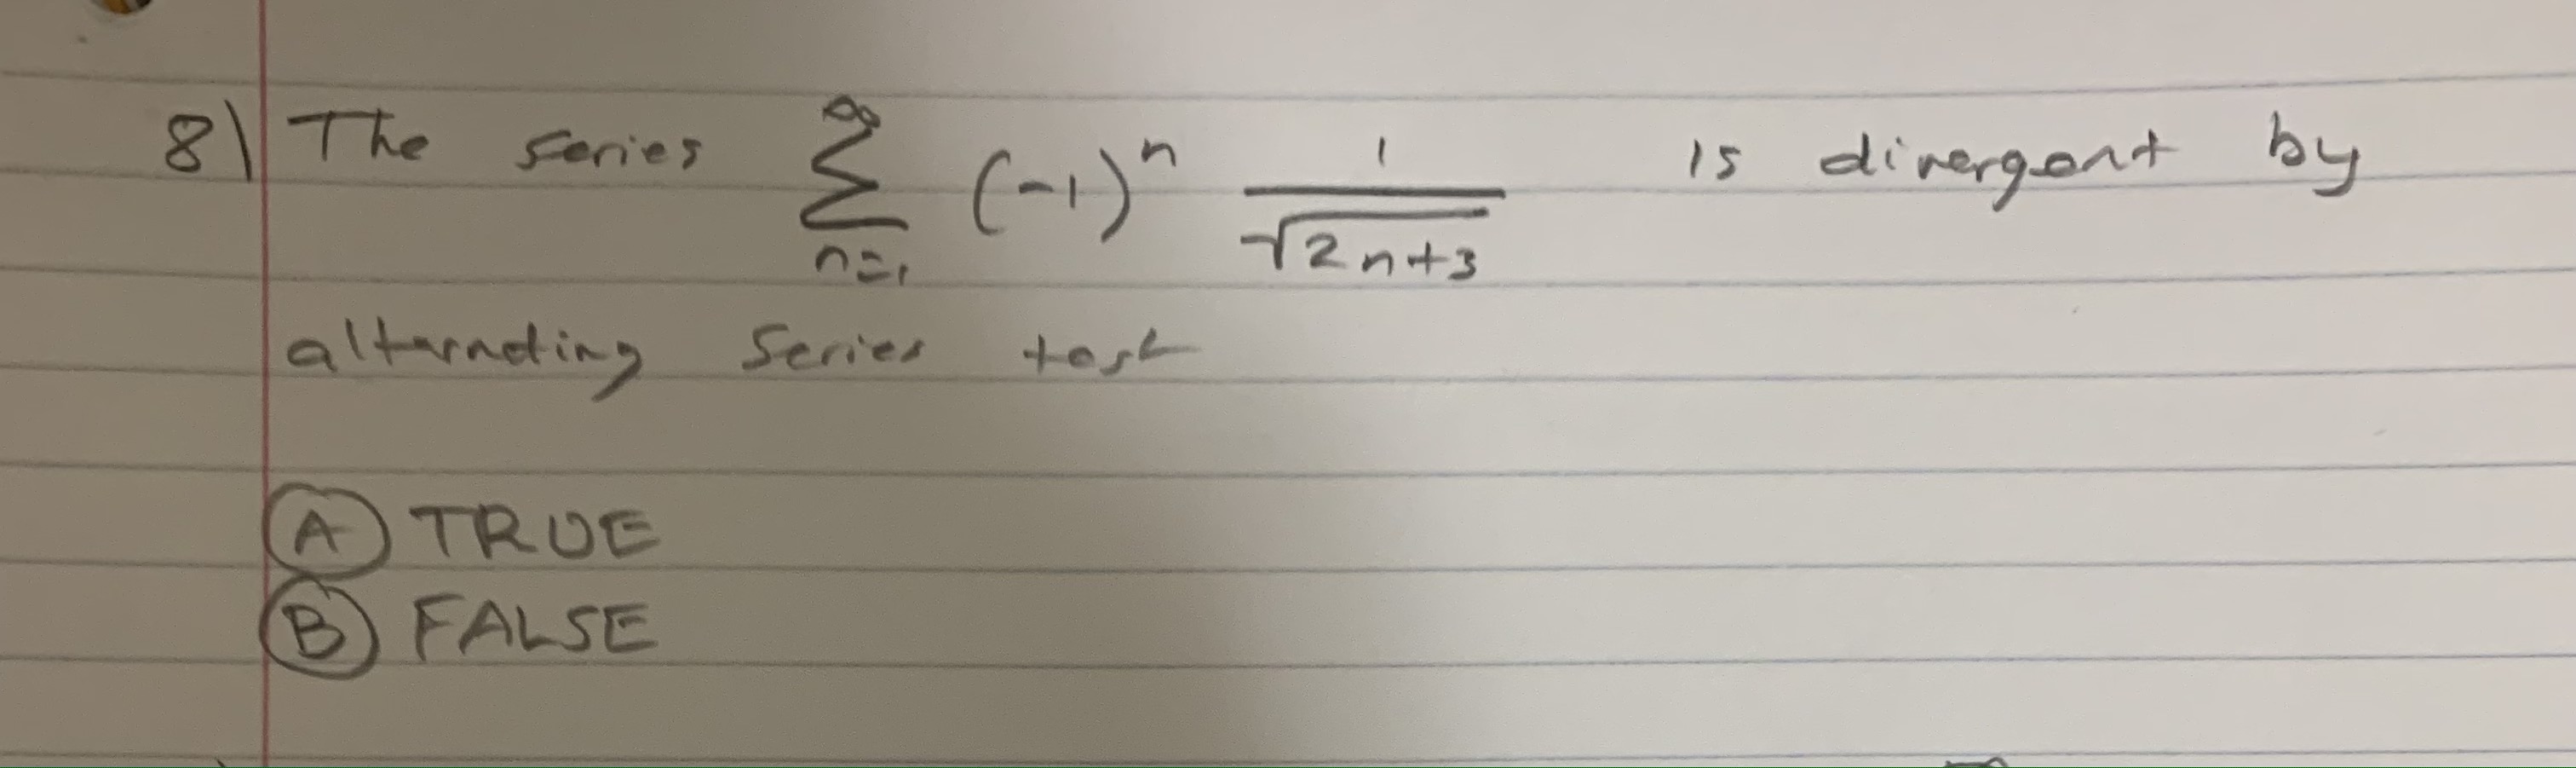 8) The series ∑_{n=1}^{∞} (-1)^n 1/√(2n+3) is divergent by
alternating Series test
(A) TRUE
(B) FALSE